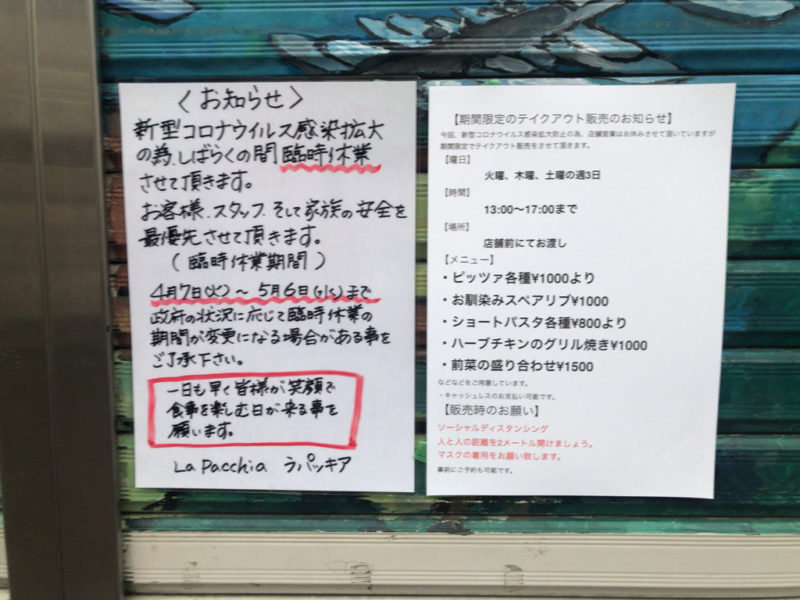 〈お知らせ〉
新型コロナウイルス感染拡大
の為、しばらくの間臨時休業
させて頂きます。
お客様、スタッフ、そして家族の安全を
最優先させて頂きます。
(臨時休業期間)
4月7日(火)~5月6日(水)まで
政府の状況に応じて臨時休業の
期間が変更になる場合がある事を
ご了承下さい。
一日も早く皆様が笑顔で
食事を楽しむ日が来る事を
願います。
La Pacchia ラパッキア
【期間限定のテイクアウト販売のお知らせ】
今回、新型コロナウイルス感染拡大防止の為、店舗営業はお休みさせて頂いていますが
期間限定でテイクアウト販売をさせて頂きます。
【曜日】
火曜、木曜、土曜の週3日
【時間】
13:00〜17:00まで
【場所】
店舗前にてお渡し
【メニュー】
・ピッツァ各種¥1000より
・お馴染みスペアリブ¥1000
・ショートパスタ各種¥800より
・ハーブチキンのグリル焼き¥1000
・前菜の盛り合わせ¥1500
などなどをご用意しています。
・キャッシュレスのお支払い可能です。
【販売時のお願い】
ソーシャルディスタンシング
人と人の距離を2メートル開けましょう。
マスクの着用をお願い致します。
事前にご予約も可能です。